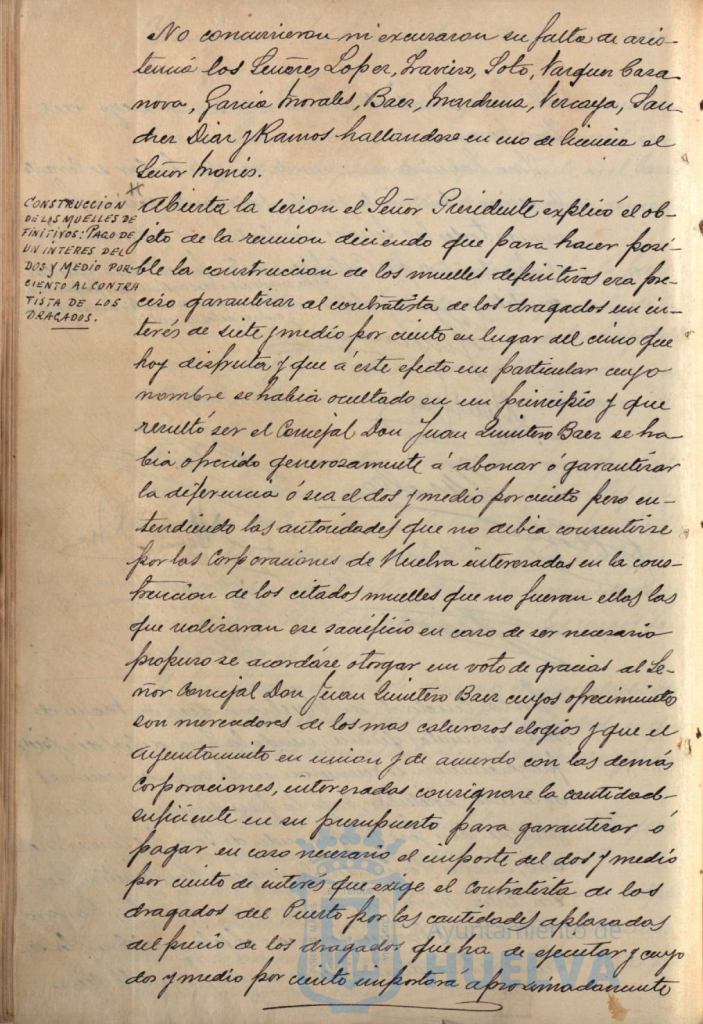 No concurrieron ni excusaron su falta de asis-
tencia los Señores Lopez, Travieso, Soto, Vazquez Casa
nova, Garcia Morales, Baez, Marchena, Vizcaya, San-
chez Diaz y Ramos hallandose en uso de licencia el
Señor Monis.
CONSTRUCCIÓN
DE LOS MUELLES DE
FINITIVOS: PAGO DE
UN INTERES DEL
DOS Y MEDIO POR
CIENTO AL CONTRA
TISTA DE LOS
DRAGADOS.
Abierta la sesion el Señor Presidente explicó el ob-
jeto de la reunion diciendo que para hacer posi-
ble la construccion de los muelles definitivos era pre-
ciso garantizar al contratista de los dragados un in-
terés de siete y medio por ciento en lugar del cinco que
hoy disfruta y que á este efecto un particular cuyo
nombre se habia ocultado en un principio y que
resultó ser el Concejal Don Juan Quintero Baez se ha
bia ofrecido generosamente á abonar ó garantizar
la diferencia ó sea el dos y medio por ciento pero en-
tendiendo las autoridades que no debia consentirse
por las Corporaciones de Huelva interesadas en la cons-
truccion de los citados muelles que no fueran ellas las
que realizaran ese sacrificio en caso de ser necesario
propuso se acordáse otorgar un voto de gracias al Se-
ñor Concejal Don Juan Quintero Baez cuyos ofrecimientos
son merecedores de los mas calurosos elogios y que el
Ayuntamiento en union y de acuerdo con las demás
Corporaciones, interesadas consignase la cantidad-
suficiente en su presupuesto para garantizar ó
pagar en caso necesario el importe del dos y medio
por ciento de interés que exige el contratista de los
dragados del Puerto por las cantidades aplazadas
del precio de los dragados que ha de ejecutar y cuyo
dos y medio por ciento importará aproximadamente
Ayuntamiento de
HUELVA